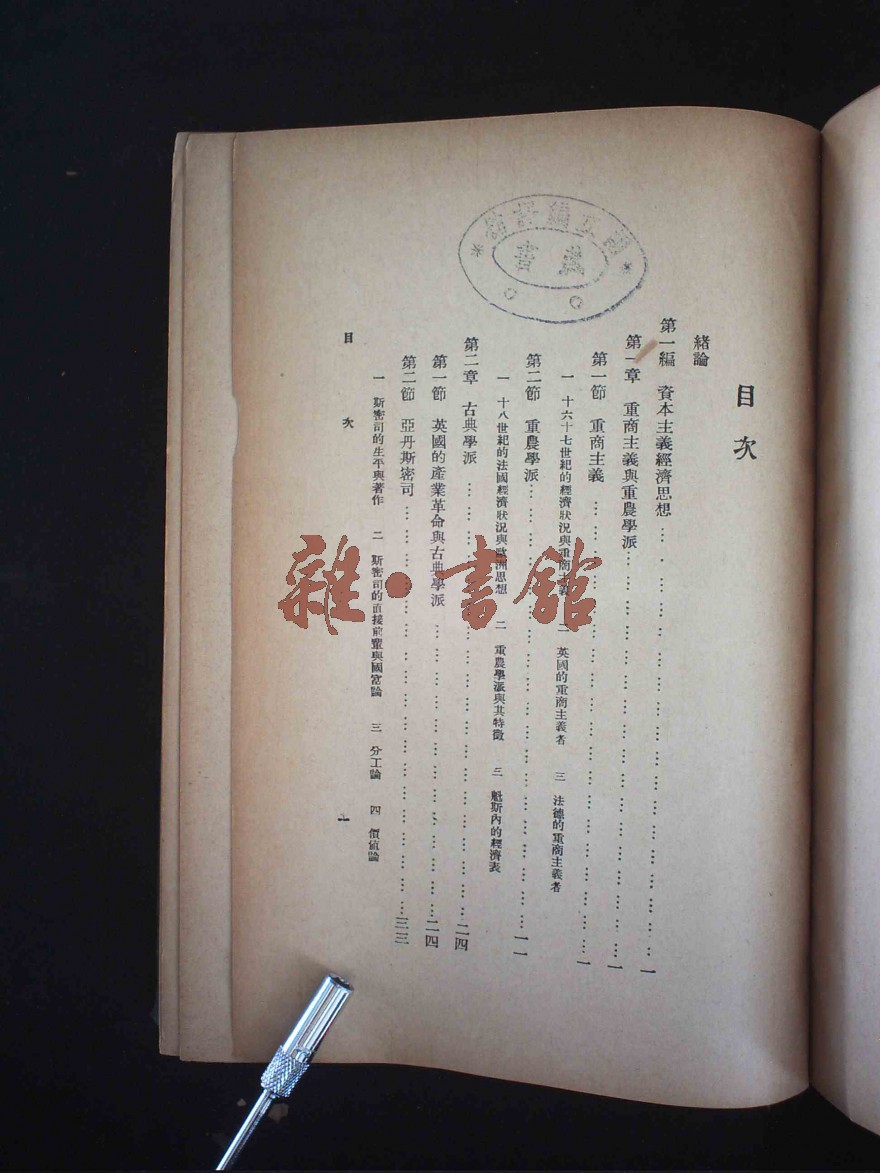 目次
緒論
第一編 資本主義經濟思想……一
第一章 重商主義與重農學派……一
第一節 重商主義……一
一 十六十七世紀的經濟狀況與重商主義 二 英國的重商主義者 三 法德的重商主義者
第二節 重農學派……一一
一 十八世紀的法國經濟狀況與歐洲思想 二 重農學派與其特徵 三 魁斯內的經濟表
第二章 古典學派……二四
第一節 英國的產業革命與古典學派……二四
第二節 亞丹斯密司……三三
一 斯密司的生平與著作 二 斯密司的直接前輩與國富論 三 分工論 四 價值論
目次 一
雜·書館